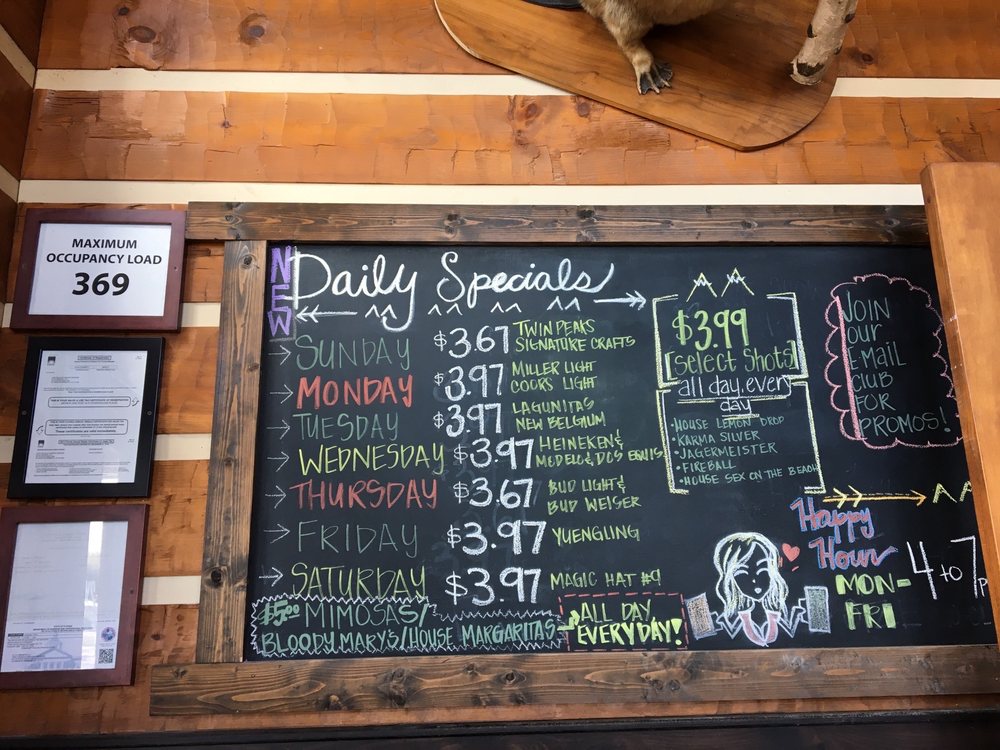 MAXIMUM
OCCUPANCY LOAD
369
NEW
Daily Specials
SUNDAY $3.67 TWIN PEAKS
SIGNATURE CRAFTS
MONDAY $3.97 MILLER LIGHT
COORS LIGHT
TUESDAY $3.97 LAGUNITAS
NEW BELGIUM
WEDNESDAY $3.97 HEINEKEN &
MODELO & DOS EQUIS
THURSDAY $3.67 BUD LIGHT &
BUD WEISER
FRIDAY $3.97 YUENGLING
SATURDAY $3.97 MAGIC HAT #9
$5.00 MIMOSAS/
BLOODY MARY'S/HOUSE MARGARITAS
ALL DAY,
EVERYDAY!
$3.99
[Select Shots]
all day, every
day
• HOUSE LEMON DROP
• KARMA SILVER
• JAGERMEISTER
• FIREBALL
• HOUSE SEX ON THE BEACH
JOIN
OUR
E-MAIL
CLUB
FOR
PROMOS!
Happy
Hour
MON-
FRI
4 to 7p